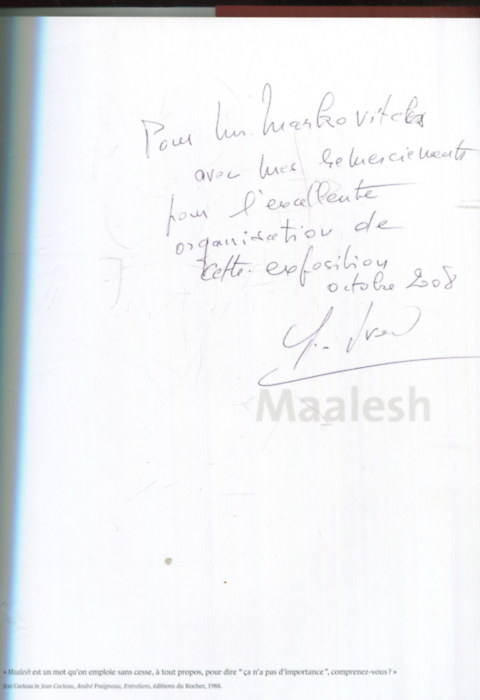 Pour Mr. Markovitch
avec mes remerciements
pour l'excellente
organisation de
cette exposition
octobre 2008
Maalesh
« Maalesh est un mot qu'on emploie sans cesse, à tout propos, pour dire "ça n'a pas d'importance", comprenez-vous? »
Jean Cocteau in Jean Cocteau, André Fraigneau, Entretiens, éditions du Rocher, 1988.